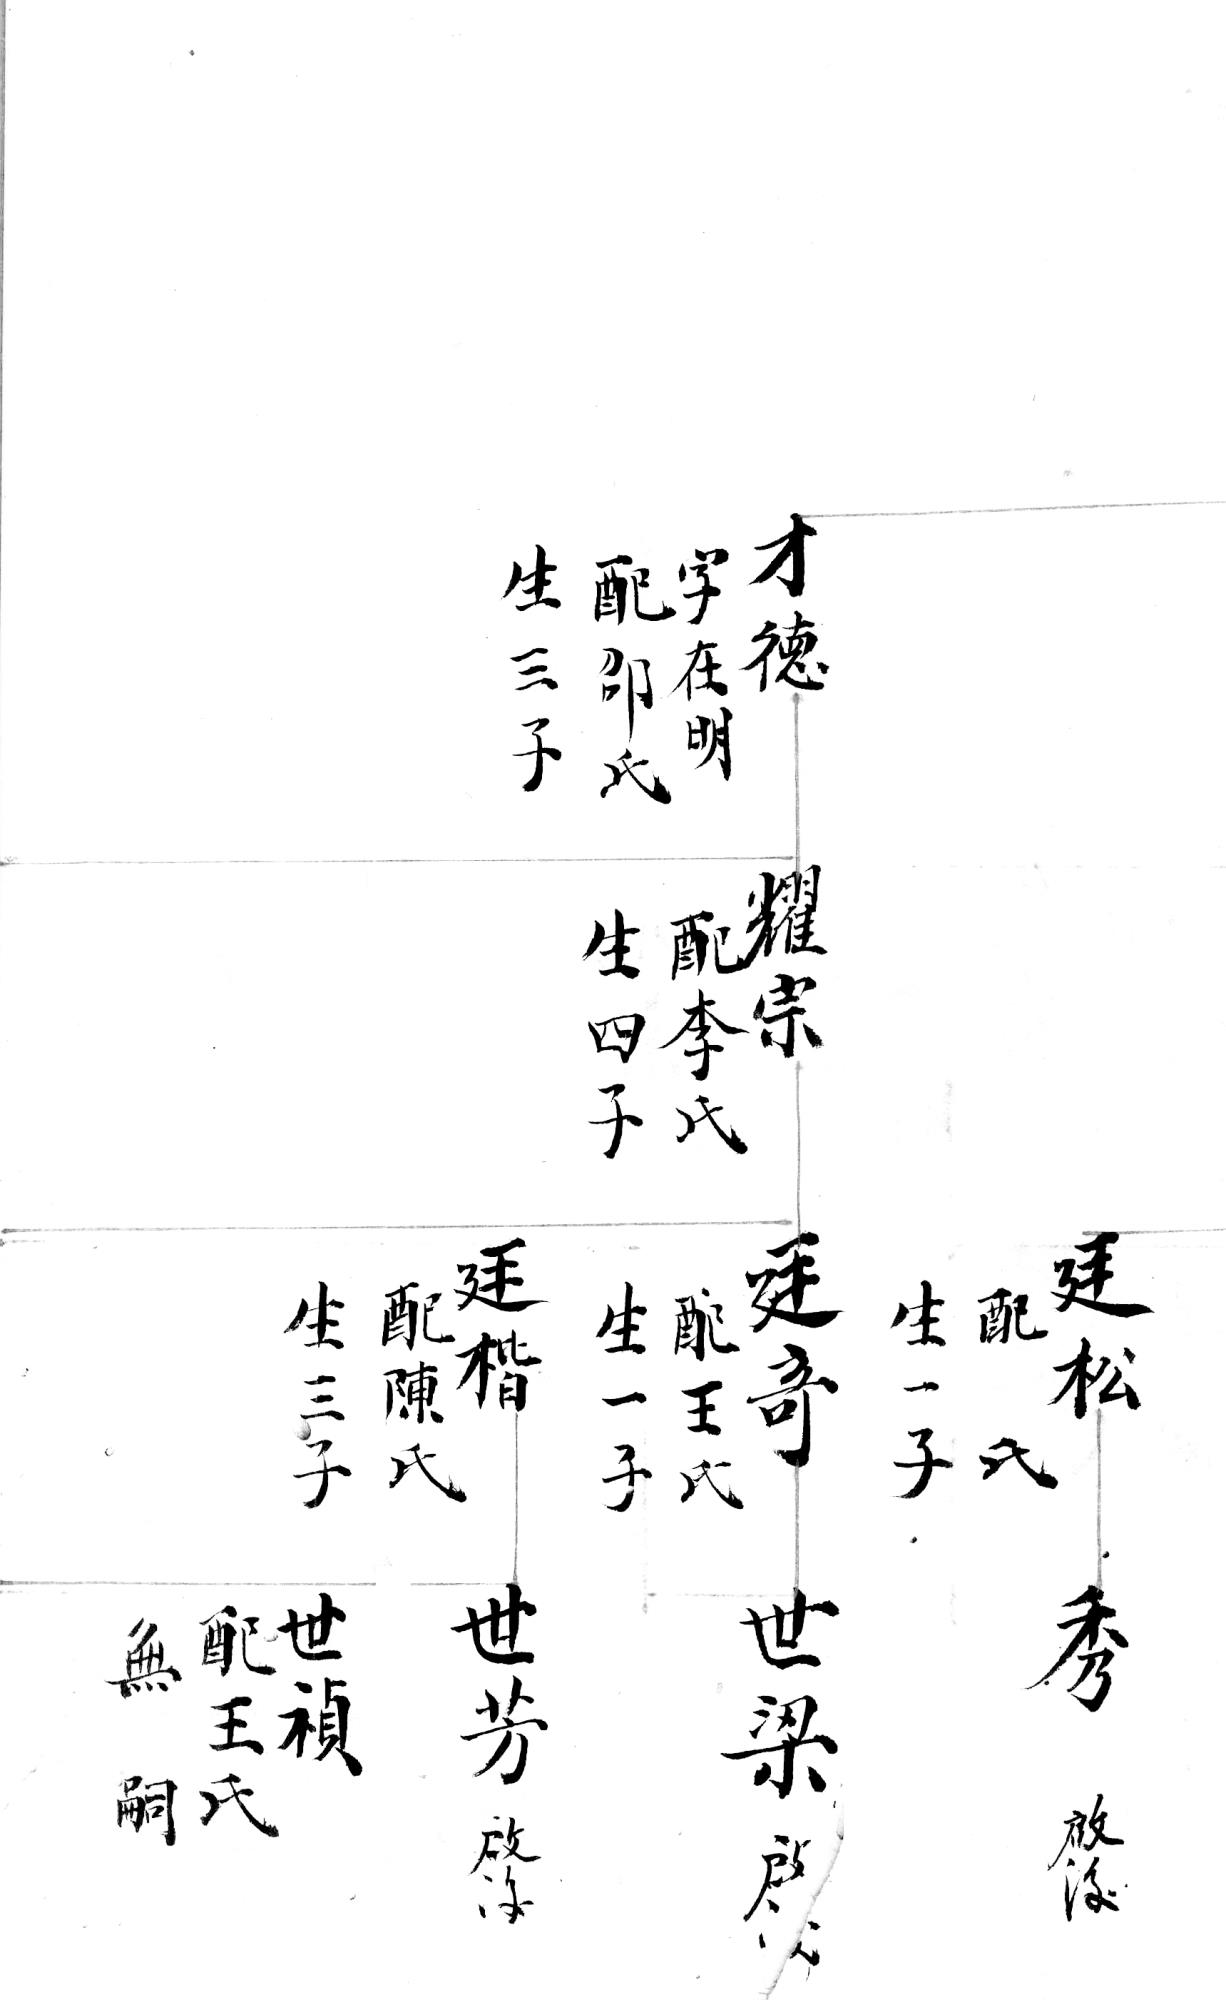 才德
字在明
配邵氏
生三子
耀宗
配李氏
生四子
廷松
配 氏
生一子
廷奇
配王氏
生一子
廷楷
配陳氏
生三子
秀 啟後
世梁 啟
世芳 啟後
世禎
配王氏
無嗣